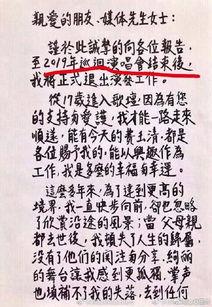 親愛的朋友、媒体先生女士：
謹於此誠摯的向各位報告，
至2019年巡迴演唱會結束後，
我將正式退出演藝工作。
從17歲進入歌壇，因為有您
的支持与愛護，我才能一路走來
順遂，能有今天的費玉清，都是
各位賜予我的，能以興趣作為
工作，我是多麼的幸福有幸運。
這麼多年來，為了達到更高的
境界，我一直快步向前，卻也忽略
了欣賞沿途的風景；當父母親
都去世後，我頓失了人生的歸屬，
沒有了他們的関注与分享，絢麗
的舞台讓我感到更孤獨，掌声
也填補不了我的失落，去到任何